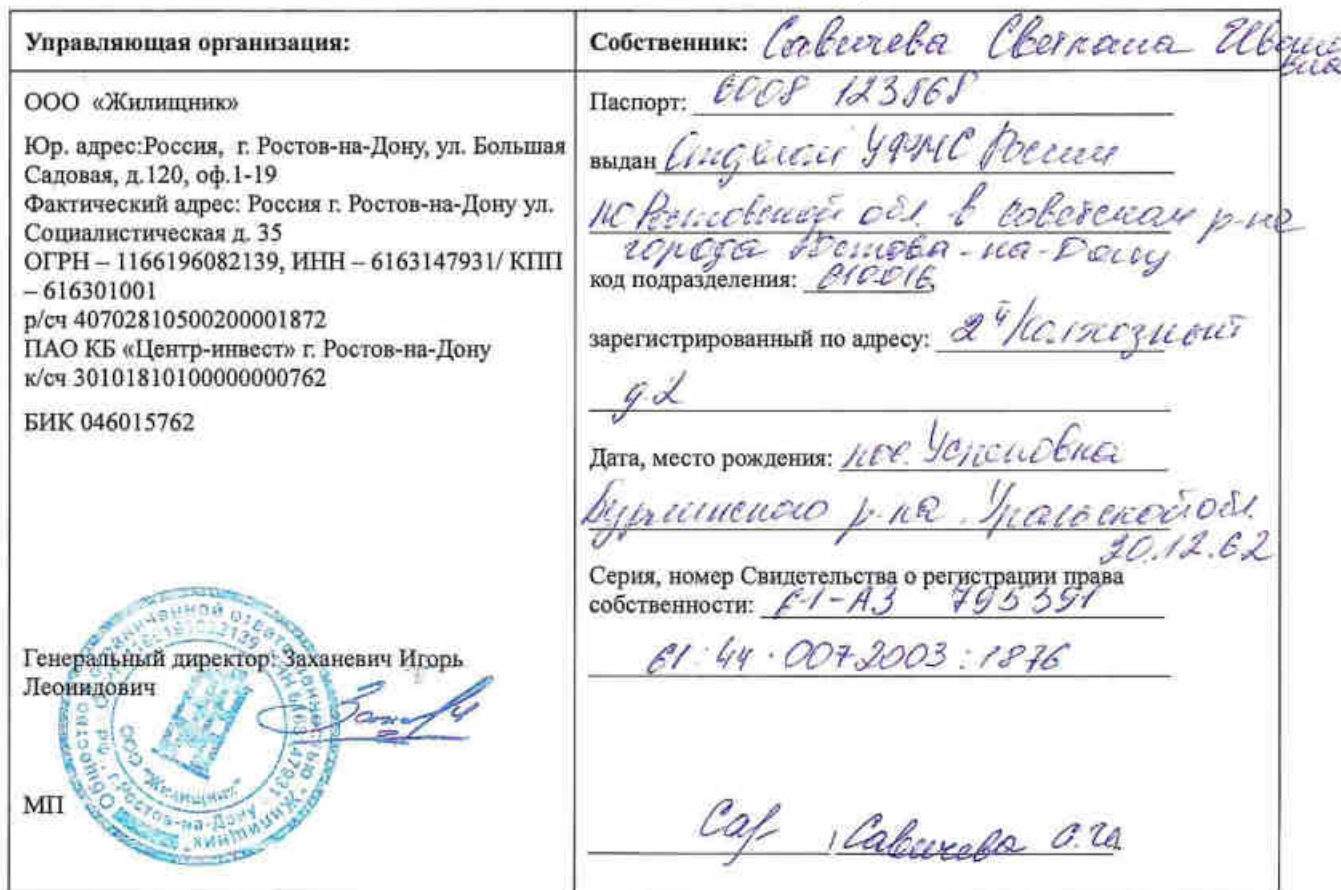 Управляющая организация:
ООО «Жилищник»
Юр. адрес:Россия, г. Ростов-на-Дону, ул. Большая
Садовая, д.120, оф.1-19
Фактический адрес: Россия г. Ростов-на-Дону ул.
Социалистическая д. 35
ОГРН – 1166196082139, ИНН – 6163147931/ КПП
– 616301001
р/сч 40702810500200001872
ПАО КБ «Центр-инвест» г. Ростов-на-Дону
к/сч 30101810100000000762
БИК 046015762
Генеральный директор: Заханевич Игорь
Леонидович
МП
Собственник: Савичева Светлана Ивановна
Паспорт: 6008 123868
выдан Отделом УФМС России
по Ростовской обл. в Советском р-не
города Ростова-на-Дону
код подразделения: 610016
зарегистрированный по адресу: 2й Колхозный
д.2
Дата, место рождения: пос. Успеновка
р-на Уральской обл.
20.12.62
Серия, номер Свидетельства о регистрации права
собственности: 61-АЗ 795391
61:44:0072003:1876
Савичева С.И.